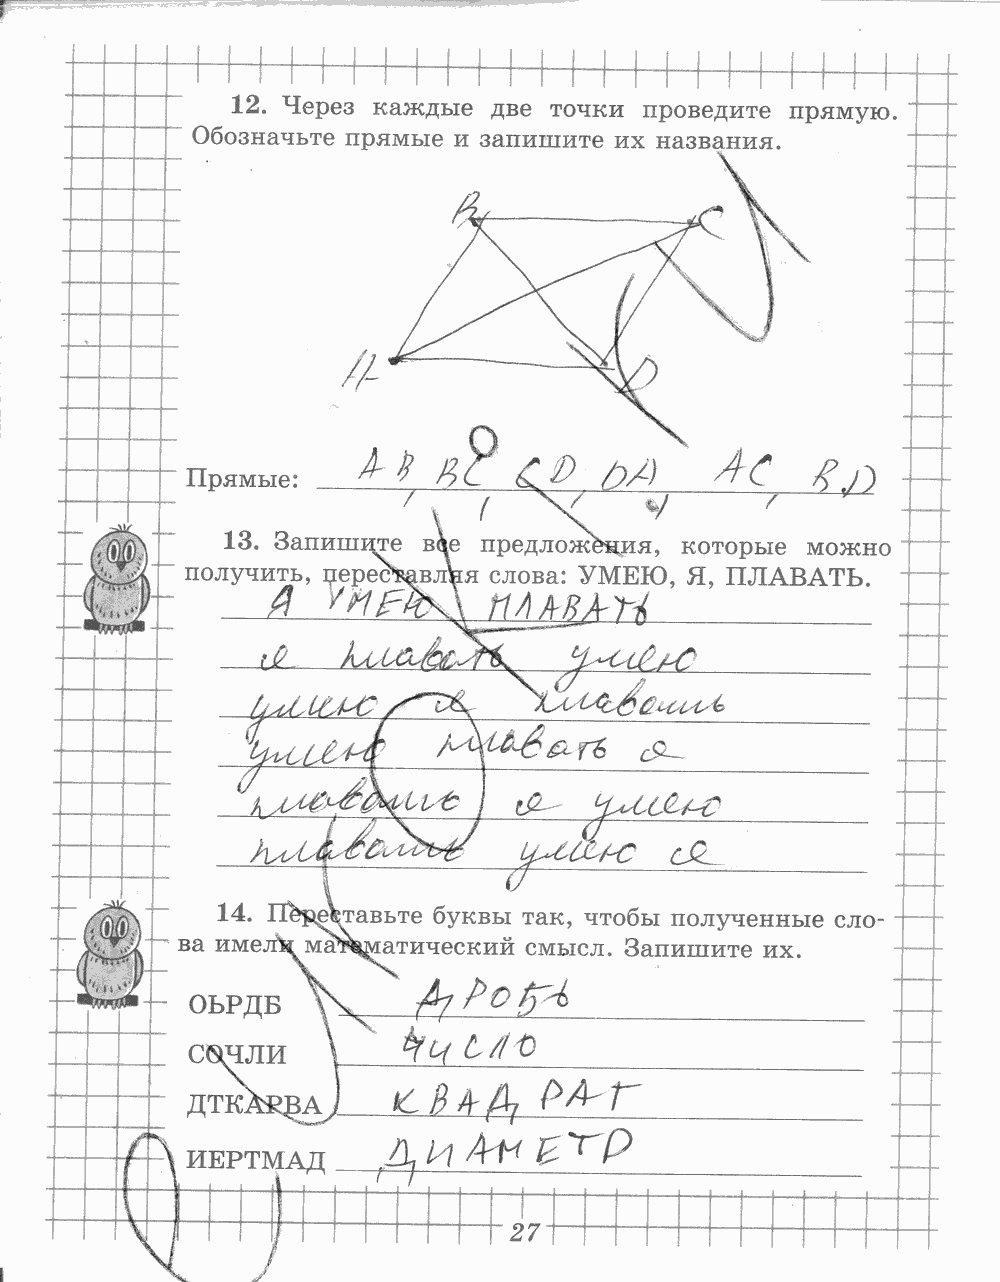 12. Через каждые две точки проведите прямую.
Обозначьте прямые и запишите их названия.
B C
A D
Прямые: AB, BC, CD, DA, AC, BD
13. Запишите все предложения, которые можно
получить, переставляя слова: УМЕЮ, Я, ПЛАВАТЬ.
Я УМЕЮ ПЛАВАТЬ
я плавать умею
умею я плавать
умею плавать я
плавать я умею
плавать умею я
14. Переставьте буквы так, чтобы полученные сло-
ва имели математический смысл. Запишите их.
ОЬРДБ ДРОБЬ
СОЧЛИ ЧИСЛО
ДТКАРВА КВАДРАТ
ИЕРТМАД ДИАМЕТР
27